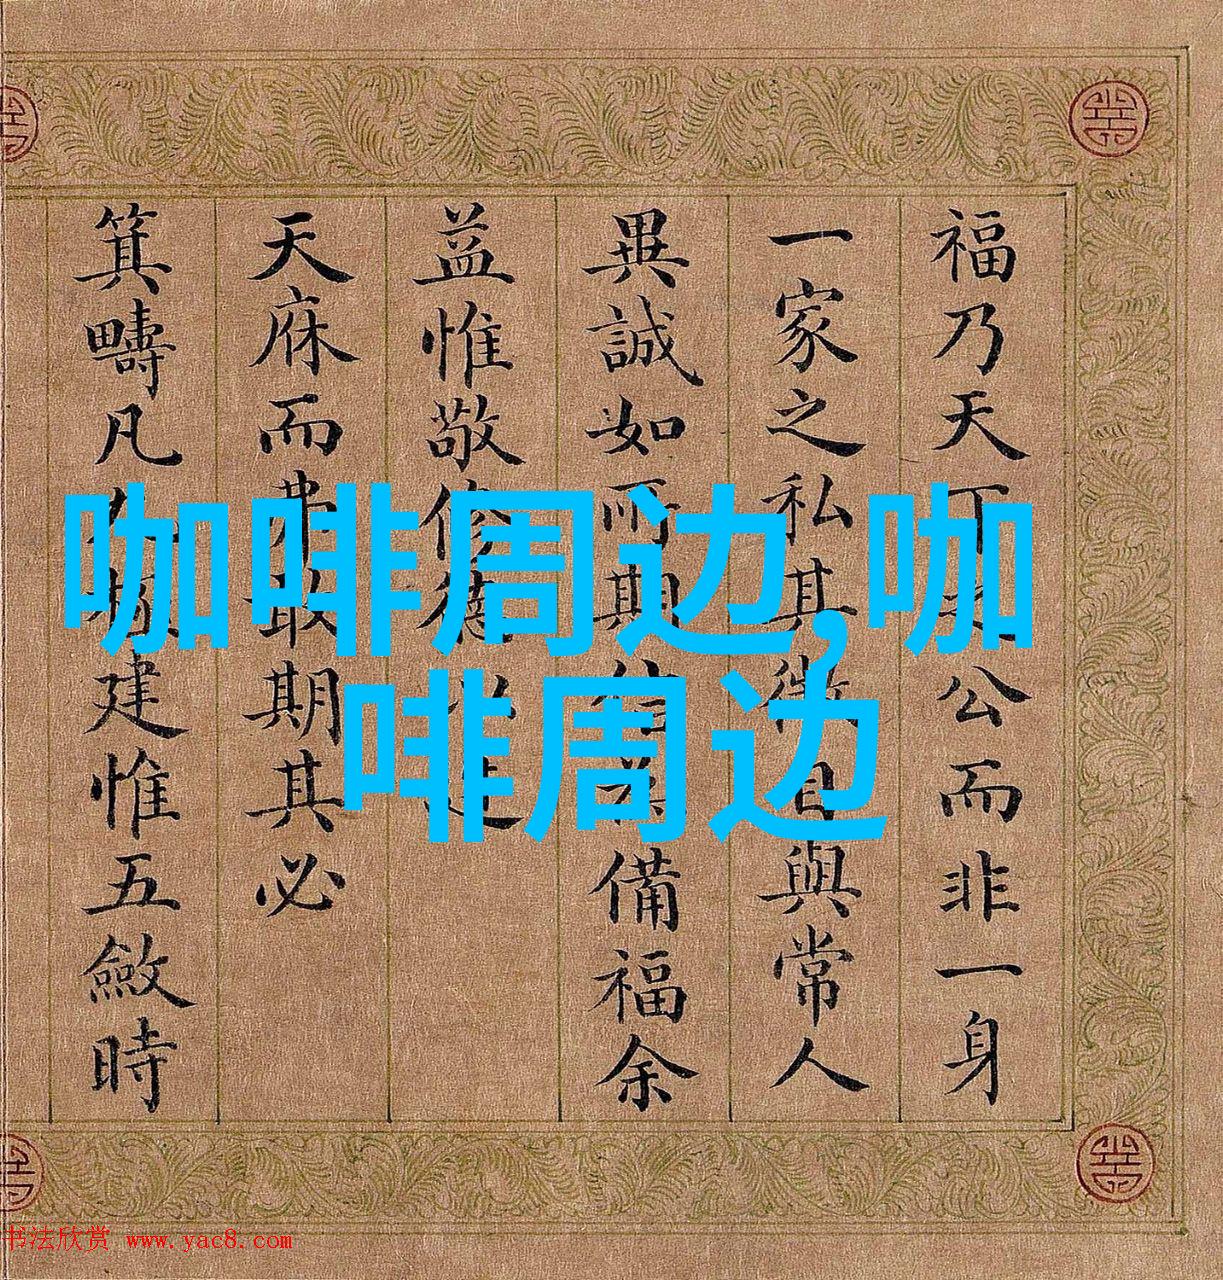 咖啡周边,咖
啡周边
福乃天下公而非一身
一家之私其自與常人
異誠如所期備福余
益惟敬修德以
天庥而弗敢期其必
箕疇凡九建惟五斂時
书法欣赏 www.yac8.com